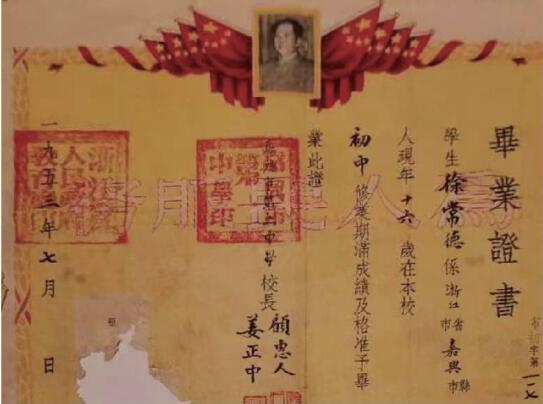 畢業證書
字第
學生徐常德係浙江省市嘉興縣市
人現年十六歲在本校
初中修業期滿成績及格准予畢
業此證
校長顧惠人
姜正中
一九五三年七月 日
為人民服務